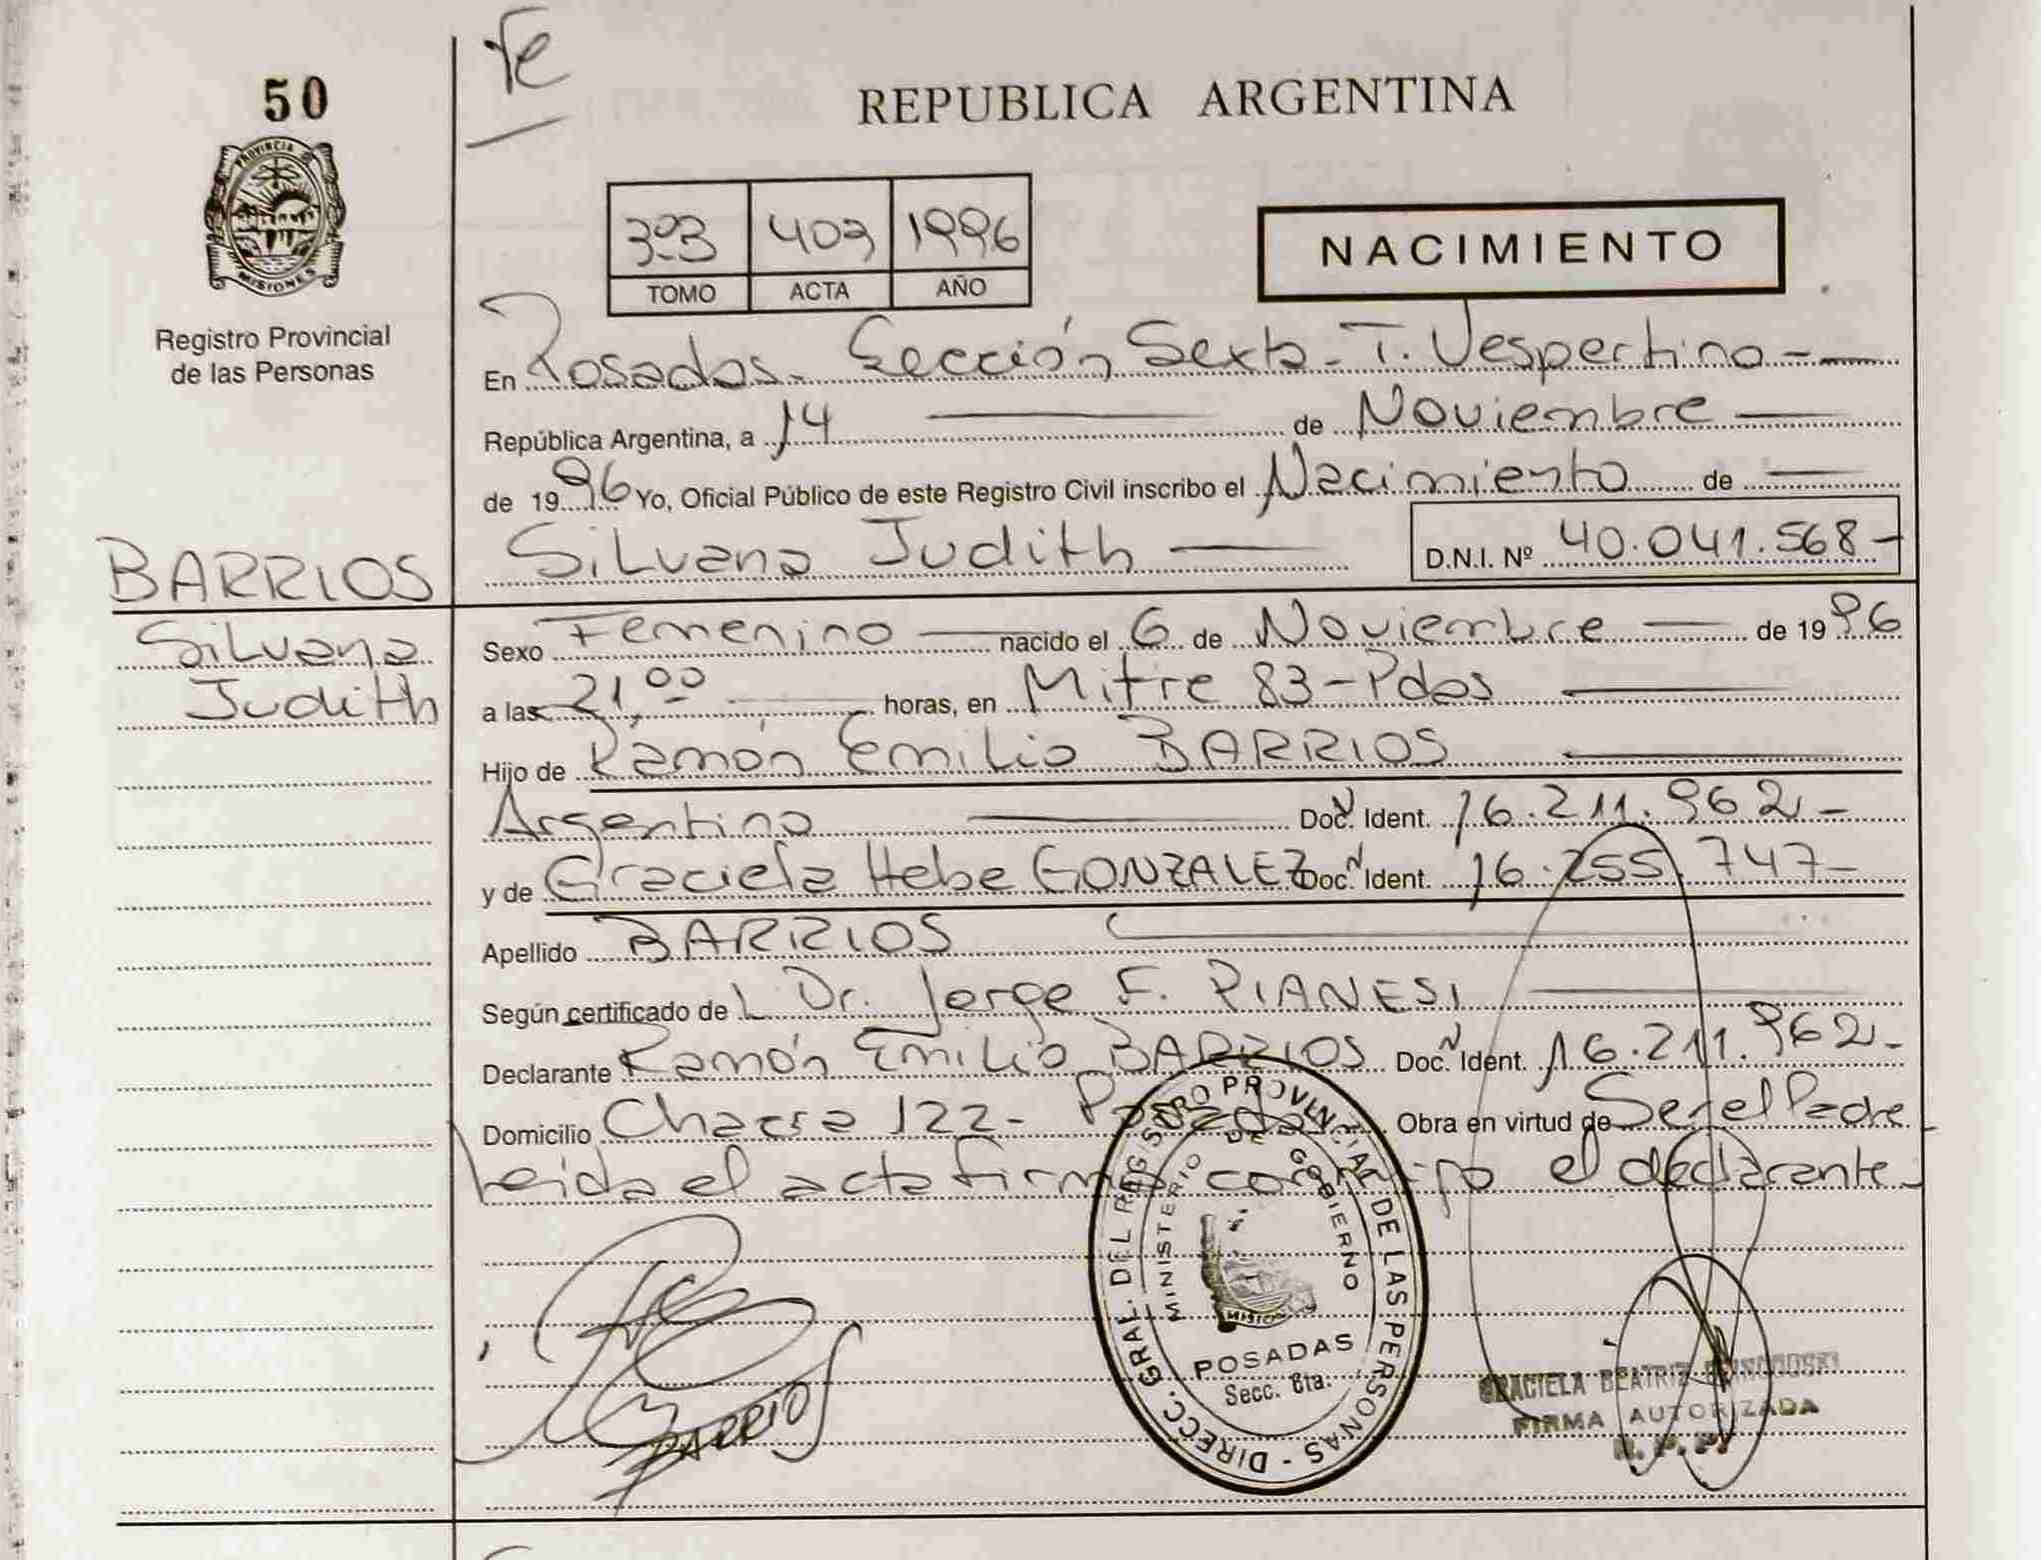 50
PROVINCIA DE
MISIONES
Registro Provincial
de las Personas
REPUBLICA ARGENTINA
3º3 403 1996
TOMO ACTA AÑO
NACIMIENTO
En Posadas. Sección Sexta - T. Vespertino -
República Argentina, a 14 de Noviembre
de 1996 Yo, Oficial Público de este Registro Civil inscribo el Nacimiento de
Silvana Judith D.N.I. Nº 40.041.568-
BARRIOS
Silvana
Judith
Sexo Femenino nacido el 6 de Noviembre de 1996
a las 21,00 horas, en Mitre 83-Pdas
Hijo de Ramón Emilio BARRIOS
Argentino Doc. N Ident. 16.211.962-
y de Graciela Hebe GONZALEZ Doc. N Ident. 16.255.747-
Apellido BARRIOS
Según certificado de L Dr. Jorge F. PIANESI
Declarante Ramón Emilio BARRIOS Doc. N Ident. 16.211.962-
Domicilio Chacra 122- Posadas Obra en virtud de Ser el Padre
Leida el acta firma conmigo el declarante
DIRECC. GRAL. DEL REGISTRO PROVINCIAL DE LAS PERSONAS -
MINISTERIO DE GOBIERNO
POSADAS
Secc. 6ta.
BARRIOS
GRACIELA BEATRIZ
FIRMA AUTORIZADA
R. P. P.